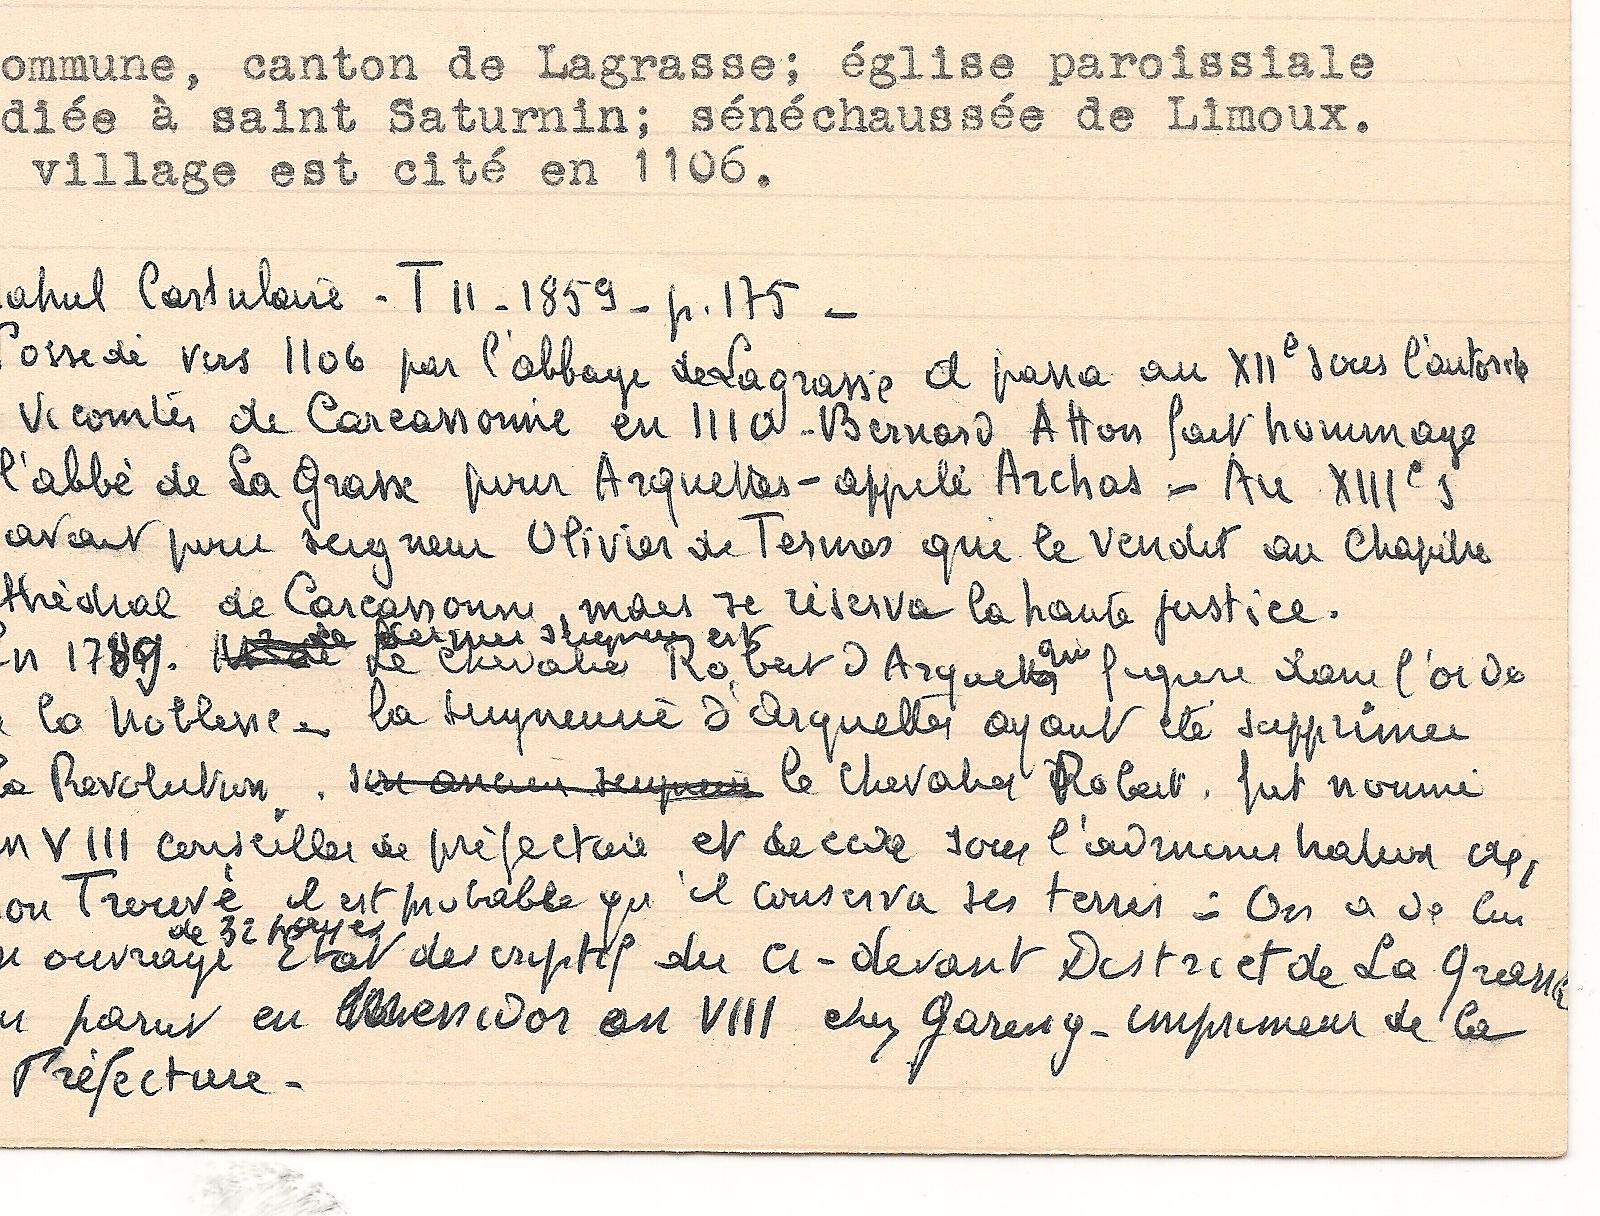 ommune, canton de Lagrasse; église paroissiale
diée à saint Saturnin; sénéchaussée de Limoux.
village est cité en 1106.
ahul Cartulaire - T II - 1859 - p. 175 -
Possede vers 1106 par l'abbaye de Lagrasse passa au XIIe sous l'autorité
Vicomtes de Carcassonne en 1110 - Bernard Atton fait hommage
l'abbé de La Grasse pour Arquettes - appelé Archas - Au XIIIe s
avait pour seigneur Olivier de Termes qui le vendit au Chapitre
thédral de Carcassonne, mais se réserva la haute justice.
le dernier seigneur est
En 1789. Le Chevalier Robert d'Arquettes qui figure dans l'ordre
la noblesse - la seigneurie d'Arquettes ayant été supprimée
la Revolution. son ancien seigneur le chevalier Robert. fut nommé
an VIII conseiller de préfecture et sous l'administration
on Trouvé il est probable qu'il conserva ses terres - On a de lui
de 32 pages
ouvrage Etat descriptif du ci-devant District de La Grasse
parut en Messidor an VIII chez Gareng - imprimeur de la
Préfecture -